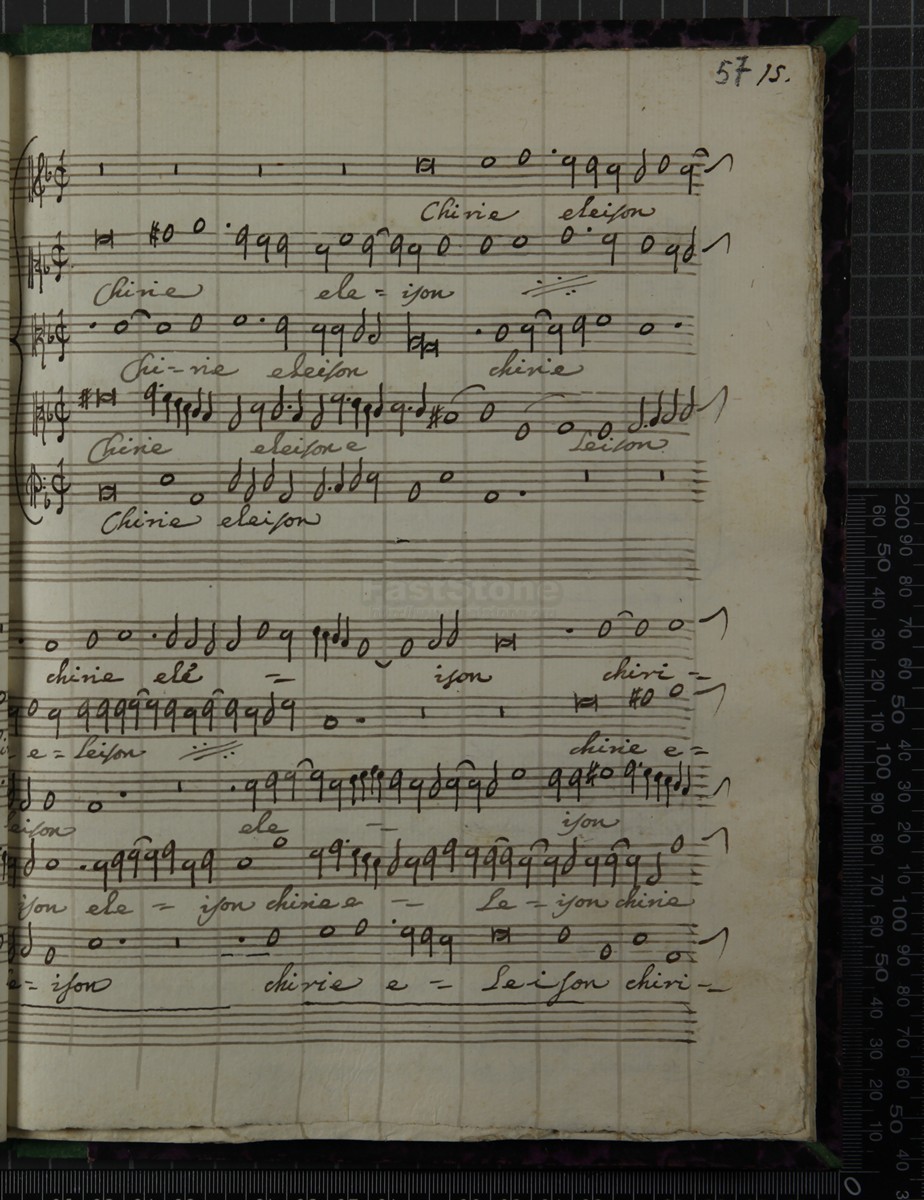 57 15.
Chirie eleison
Chirie ele = ison
Chi - rie eleison chirie
Chirie eleison e Leison
Chirie eleison
FastStone
chirie ele = ison chiri =
e = Leison chirie e =
eison ele - ison
ison ele = ison chirie e - Le = ison chirie
e = ison chirie e = Leison chiri -
200 90 80 70 60 50 40 30 20 10 100 90 80 70 60 50 40
60 50 40 30 20 10 110 100 90 80 70 60 50 40 30 20 10 0